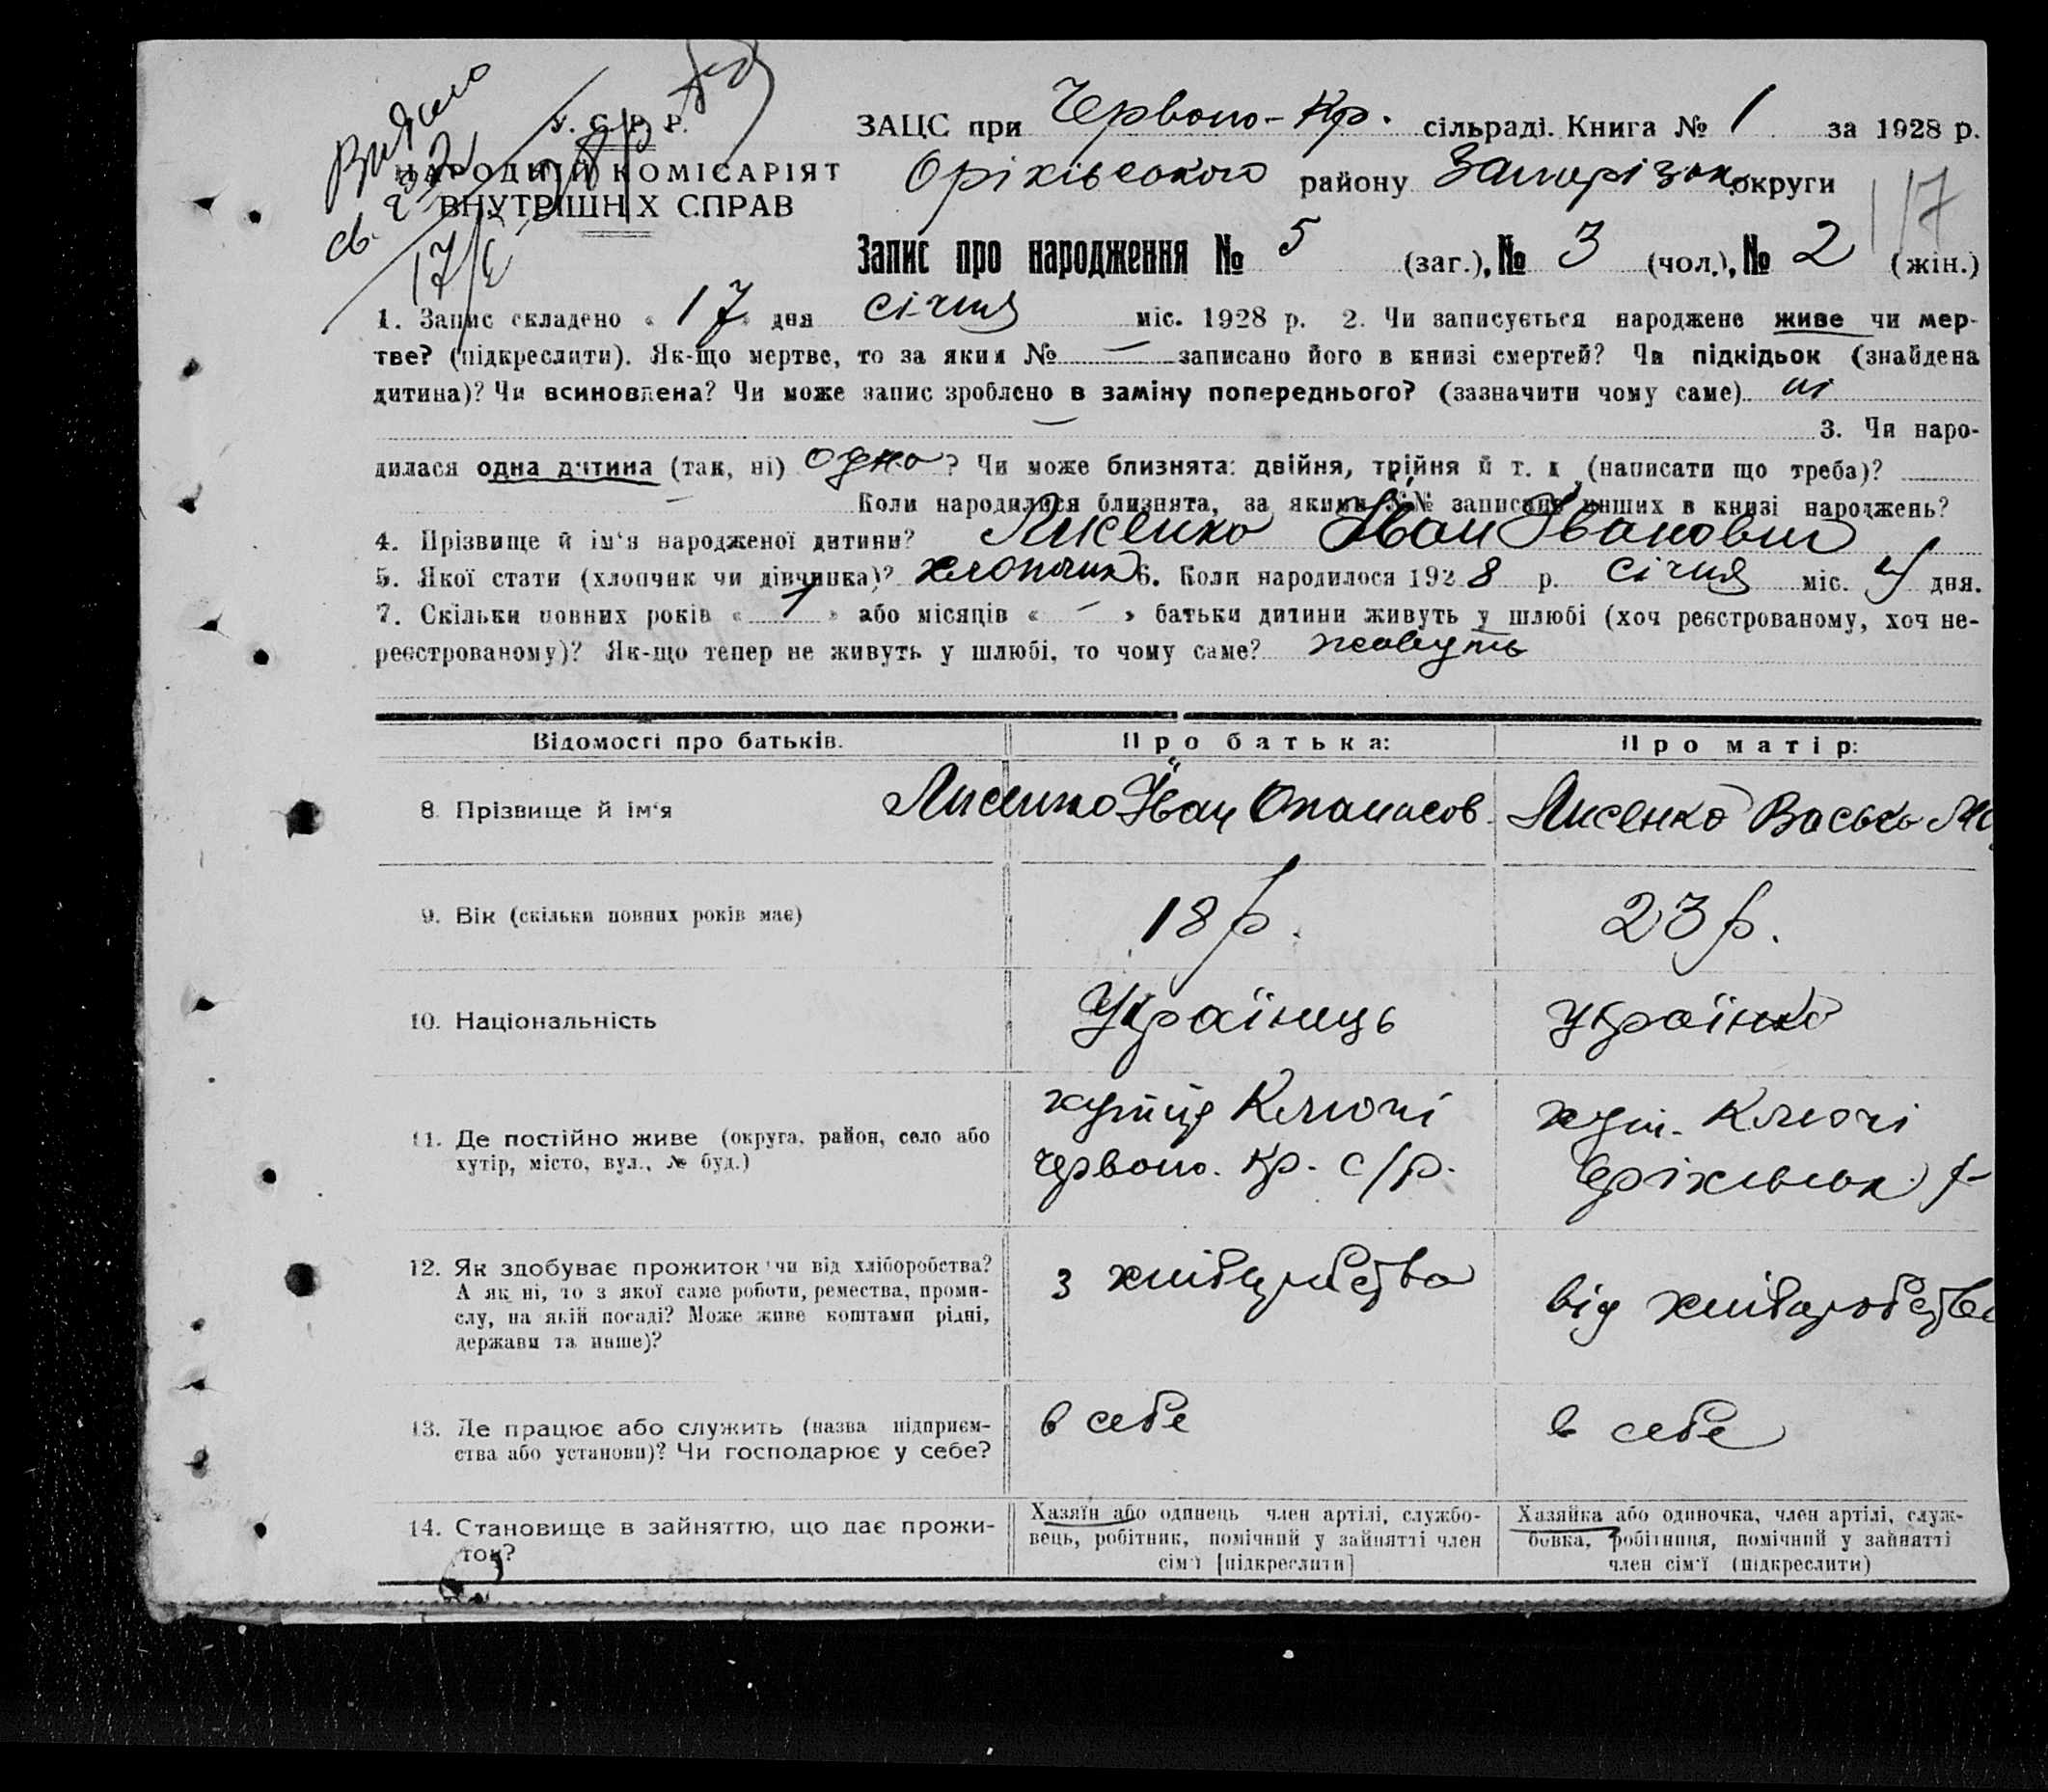 Видано
У. С. Р. Р.
НАРОДНІЙ КОМІСАРІЯТ
ВНУТРІШНІХ СПРАВ
ЗАЦС при Червоно-Кр. сільраді. Книга № 1 за 1928 р.
Оріхівського району Запорізьк. округи
117
Запис про народження № 5 (заг.), № 3 (чол.), № 2 (жін.)
1. Запис складено « 17 » дня січня міс. 1928 р. 2. Чи записується народжене живе чи мер-
тве? (підкреслити). Як-що мертве, то за яким № — записано його в книзі смертей? Чи підкідьок (знайдена
дитина)? Чи всиновлена? Чи може запис зроблено в заміну попереднього? (зазначити чому саме) ні
— 3. Чи наро-
дилася одна дитина (так, ні) одно? Чи може близнята: двійня, трійня й т. і. (написати що треба)?
— Коли народилися близнята, за якими №№ записано инших в книзі народжень?
4. Прізвище й ім'я народженої дитини? Лисенко Іван Іванович
5. Якої стати (хлопчик чи дівчинка)? хлопчик 6. Коли народилося 1928 р. січня міс. 4 дня.
7. Скільки повних років « 1 » або місяців « — » батьки дитини живуть у шлюбі (хоч реєстрованому, хоч не-
реєстрованому)? Як-що тепер не живуть у шлюбі, то чому саме? живуть
Відомості про батьків. Про батька: Про матір:
8. Прізвище й ім'я Лисенко Іван Опанасов. Лисенко Васька
9. Вік (скільки повних років має) 18 р. 23 р.
10. Національність Українець Українка
11. Де постійно живе (округа, район, село або
хутір, місто, вул., № буд.)
Ключі
Червоно. Кр. с/р.
хут. Ключі
Оріхівськ. р-
12. Як здобуває прожиток: чи від хліборобства?
А як ні, то з якої саме роботи, ремества, проми-
слу, на якій посаді? Може живе коштами рідні,
держави та инше)?
з хліборобства
від хліборобства
13. Де працює або служить (назва підприєм-
ства або установи)? Чи господарює у себе?
в себе
в себе
14. Становище в зайняттю, що дає прожи-
ток?
Хазяїн або одинець член артілі, службо-
вець, робітник, помічний у зайнятті член
сім'ї [підкреслити]
Хазяйка або одиночка, член артілі, служ-
бовка, робітниця, помічний у зайнятті
член сім'ї (підкреслити)